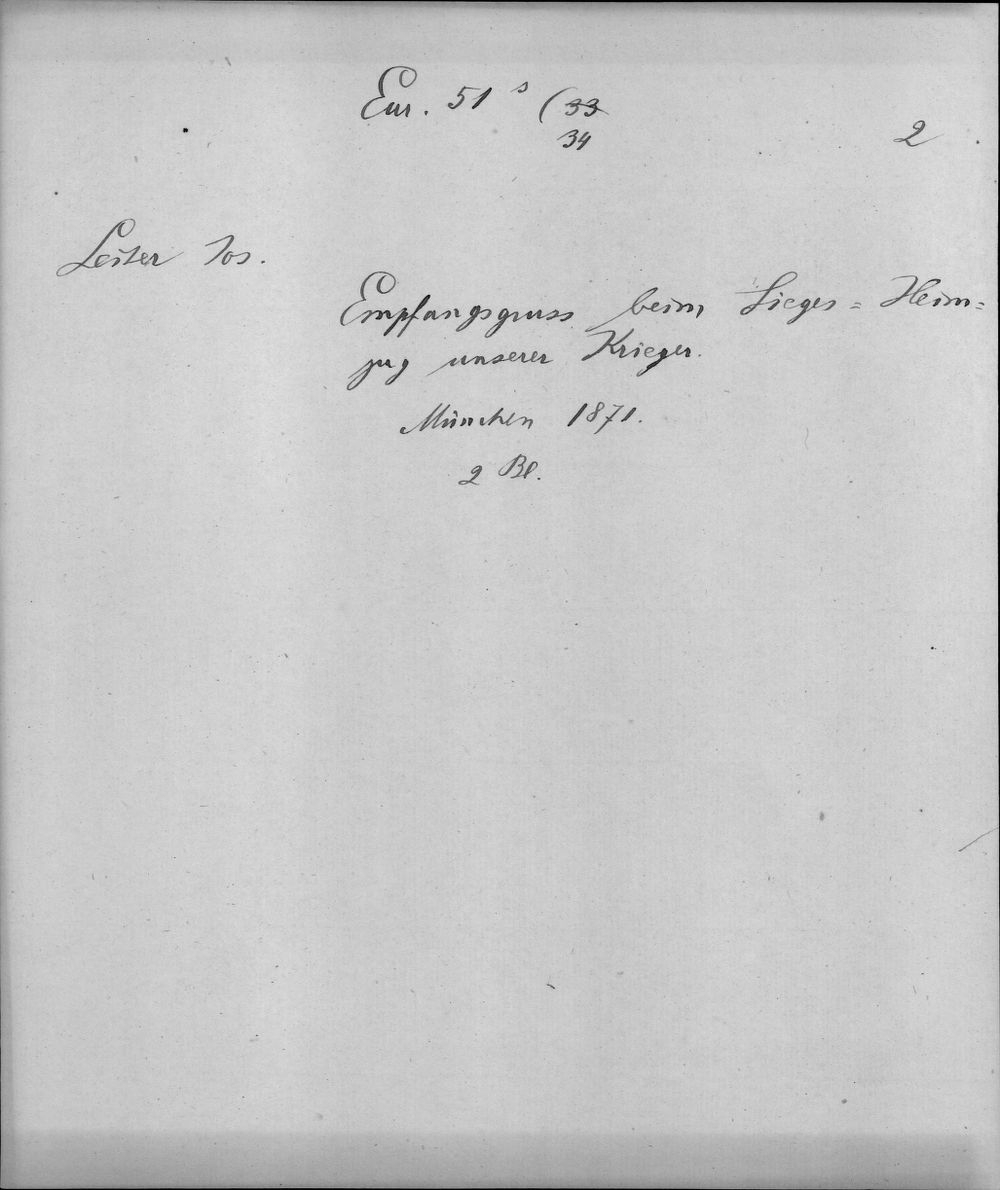 Eur. 51 s (33
34
2
Leiter Jos.
Empfangsgruss beim Sieges=Heim=
zug unserer Krieger.
München 1871.
2 Bl.